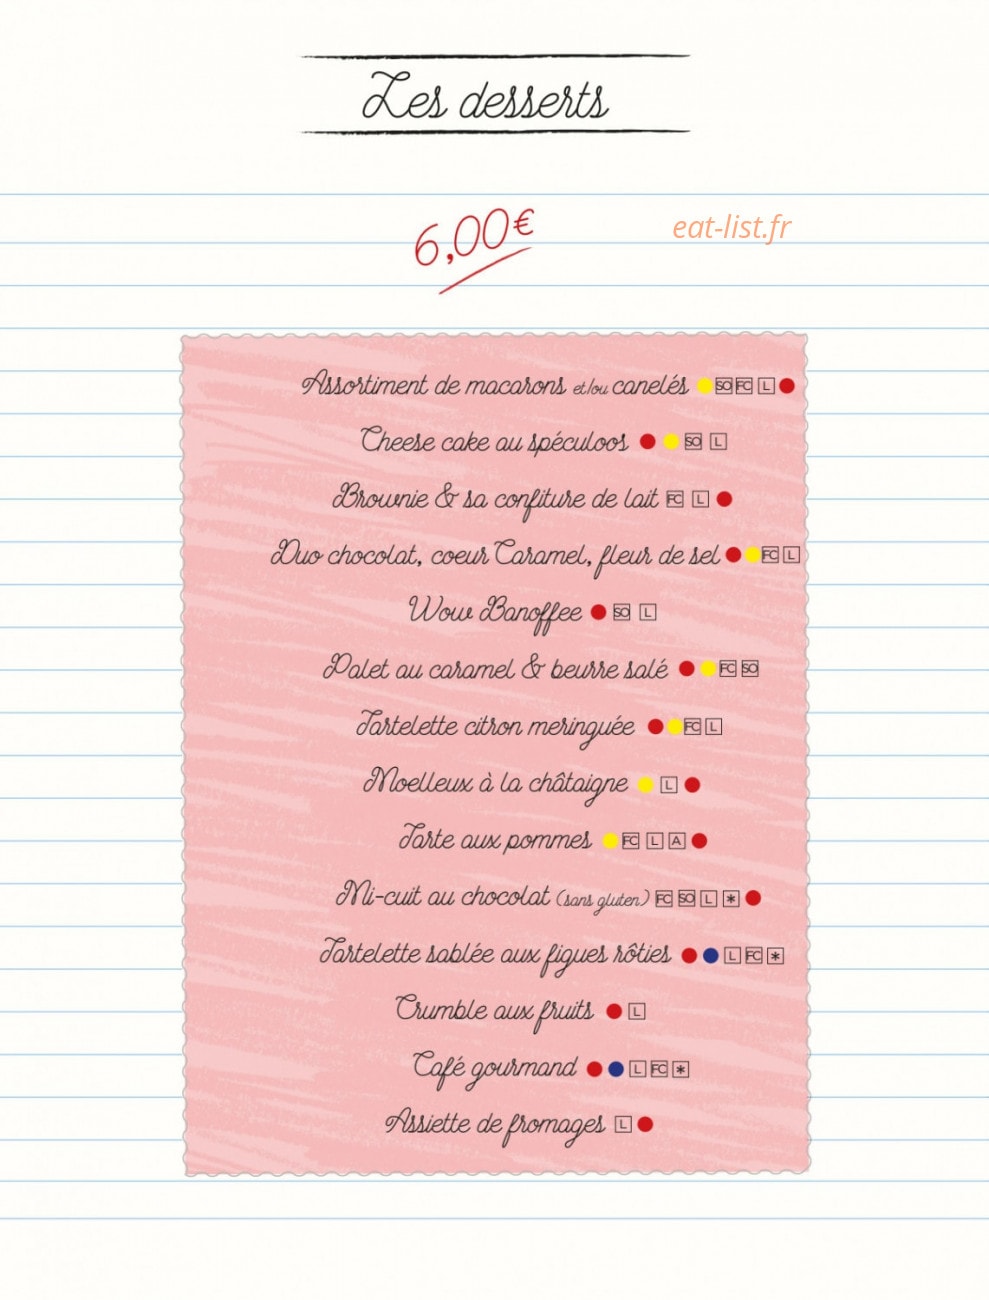 Les desserts
6,00€
eat-list.fr
Assortiment de macarons et/ou canelés SO FC L
Cheese cake au spéculoos SO L
Brownie & sa confiture de lait FC L
Duo chocolat, coeur Caramel, fleur de sel FC L
Wow Banoffee SO L
Palet au caramel & beurre salé FC SO
Tartelette citron meringuée FC L
Moelleux à la châtaigne L
Tarte aux pommes FC L A
Mi-cuit au chocolat (sans gluten) FC SO L *
Tartelette sablée aux figues rôties L FC *
Crumble aux fruits L
Café gourmand L FC *
Assiette de fromages L